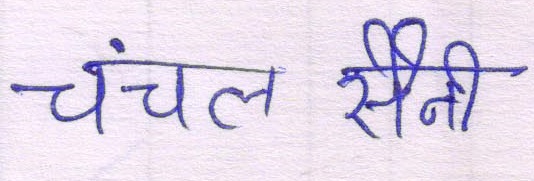 चंचल सैनी